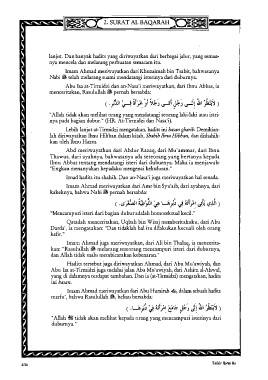 2. SURAT AL BAQARAH
lanjut. Dan banyak hadits yang diriwayatkan dari berbagai jalur, yang semua-
nya mencela dan melarang perbuatan semacam itu.
Imam Ahmad meriwayatkan dari Khuzaimah bin Tsabit, bahwasanya
Nabi ﷺ telah melarang suami mendatangi isterinya dari duburnya.
Abu Isa at-Tirmidzi dan an-Nasa'i meriwayatkan, dari Ibnu Abbas, ia
menceritakan, Rasulullah ﷺ pernah bersabda:
( لاَ يَنْظُرُ اللهُ إِلَى رَجُلٍ أَتَى رَجُلاً أَوِ امْرَأَةً فِي الدُّبُرِ. )
"Allah tidak akan melihat orang yang mendatangi seorang laki-laki atau isteri-
nya pada bagian dubur." (HR. At-Tirmidzi dan Nasa'i).
Lebih lanjut at-Tirmidzi mengatakan, hadits ini hasan gharib. Demikian-
lah diriwayatkan Ibnu Hibban dalam kitab, Shahih Ibnu Hibban, dan dishahih-
kan oleh Ibnu Hazm.
Abd meriwayatkan dari Abdur Razaq, dari Mu'ammar, dari Ibnu
Thawus, dari ayahnya, bahwasanya ada seseorang yang bertanya kepada
Ibnu Abbas tentang mendatangi isteri dari duburnya. Maka ia menjawab:
"Engkau menanyakan kepadaku mengenai kekufuran."
Isnad hadits itu shahih. Dan an-Nasa'i juga meriwayatkan hal senada.
Imam Ahmad meriwayatkan dari Amr bin Syu'aib, dari ayahnya, dari
kakeknya, bahwa Nabi ﷺ bersabda:
( الَّذِي يَأْتِي امْرَأَتَهُ فِي دُبُرِهَا هِيَ اللُّوطِيَّةُ الصُّغْرَى. )
"Mencampuri isteri dari bagian dubur adalah homoseksual kecil."
Qatadah menceritakan, Uqbah bin Wisaj memberitahuku, dari Abu
Darda', ia mengatakan: "Dan tidaklah hal itu dilakukan kecuali oleh orang
kafir."
Imam Ahmad juga meriwayatkan, dari Ali bin Thalaq, ia menceritakan:
"Rasulullah ﷺ melarang seseorang mencampuri isteri dari duburnya,
dan Allah tidak malu membicarakan kebenaran."
Hadits tersebut juga diriwayatkan Ahmad, dari Abu Mu'awiyah, dan
Abu Isa at-Tirmidzi juga melalui jalan Abu Mu'awiyah, dari Ashim al-Ahwal,
yang di dalamnya terdapat tambahan. Dan ia (at-Tirmidzi) mengatakan, hadits
ini hasan.
Imam Ahmad meriwayatkan dari Abu Hurairah, dalam sebuah hadits
marfu', bahwa Rasulullah ﷺ, beliau bersabda:
( لاَ يَنْظُرُ اللهُ إِلَى رَجُلٍ جَامَعَ امْرَأَتَهُ فِي دُبُرِهَا. )
"Allah tidak akan melihat kepada orang yang mencampuri isterinya dari
duburnya."
Tafsir Ibnu Katsir